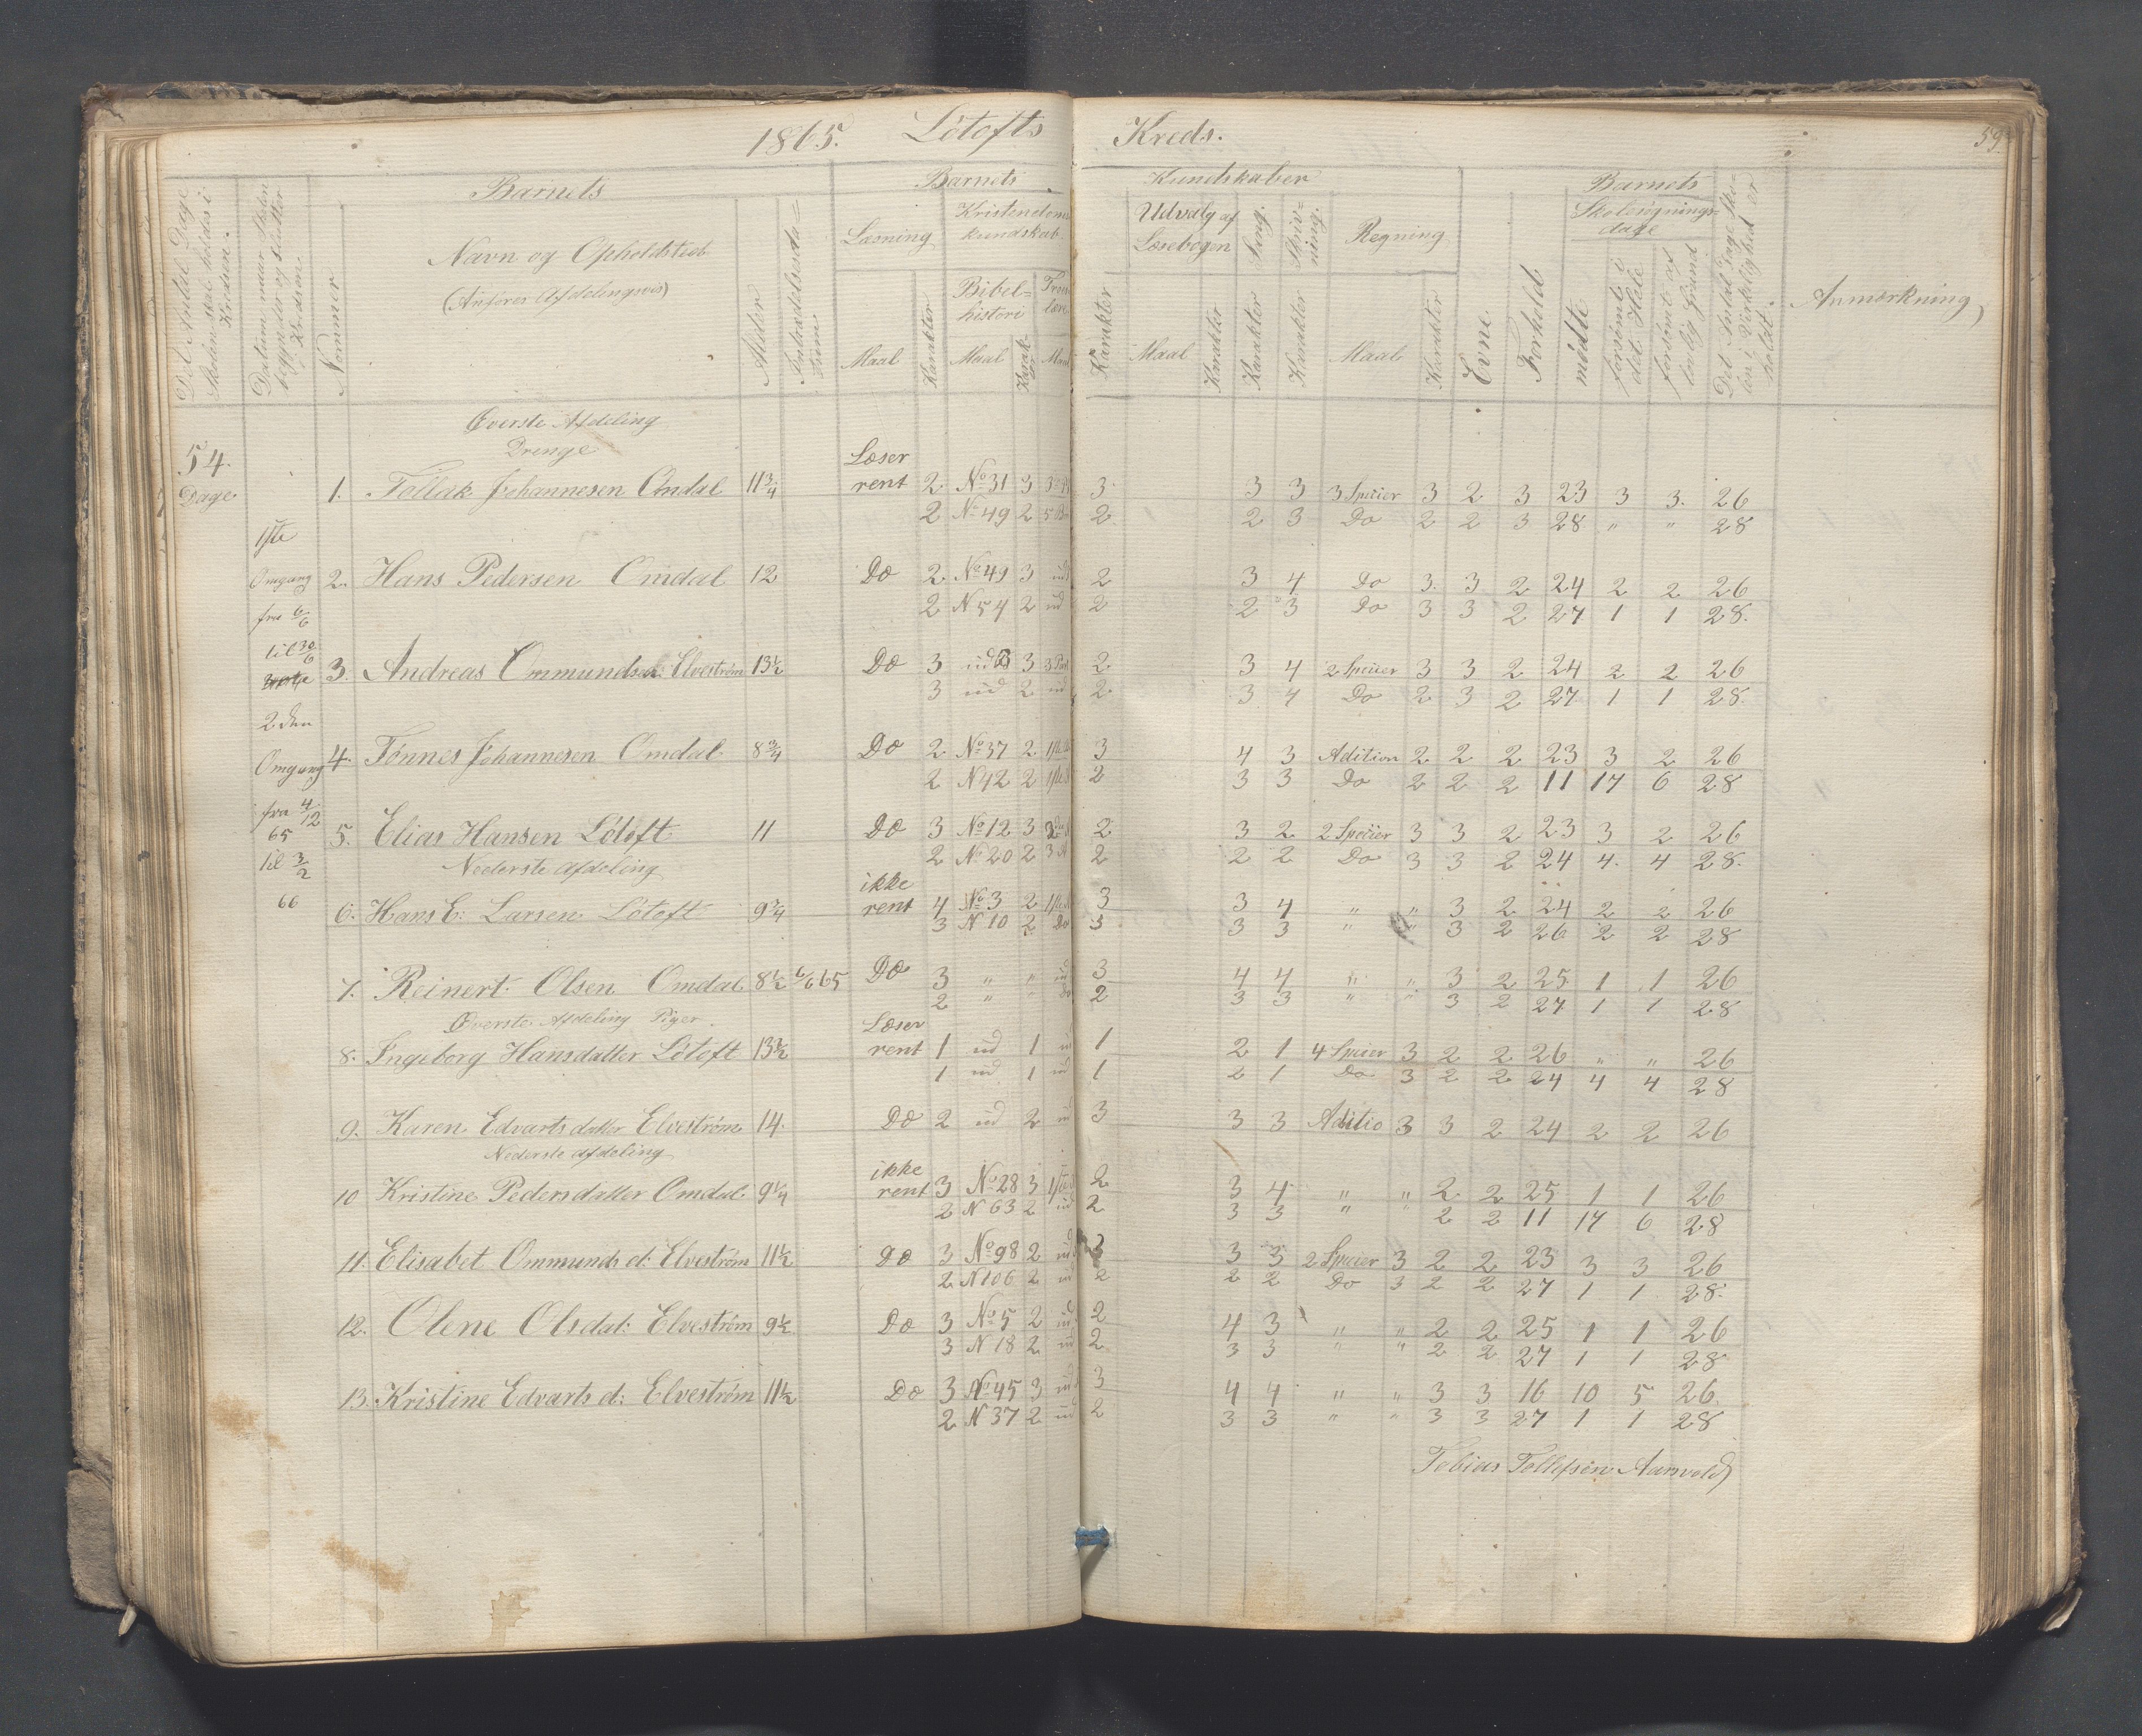 1865. Lótofts Kreds. 59
Det Antal Dage Skolen skal holdes i Kredsen.
Datum naar Skolen begynder og slutter i Kredsen.
Nommer
Barnets
Navn og Opholdsted
(Anføres Afdelingsvis)
Alder
Indtrædelsesda-
tum.
Barnets Kundskaber
Læsning
Maal
Karakter
Kristendoms
kundskab
Bibel-
histori
Maal
Karak-
ter
Troes
lære
Maal
Karakter
Udvalg af
Læsebogen
Maal
Karakter
Sang.
Karakter
Skriv-
ning.
Karakter
Regning
Maal
Karakter
Evne.
Forhold
Barnets
Skolesøgnings-
dage
mödte
forsömt i
det Hele
forsömt af
lovlig Grund
Det Antal Dage Sko-
len i Virkelighed er
holdt.
Anmærkning
54.
Dage
1ste
Omgang
fra 6/6
til 30/6
2den
Omgang
fra 4/12
65
til 3/2
66
Øverste Afdeling
Drenge
Læser
1. Tollak Johannesen Omdal 11 3/4 rent 2 No 31 3 3 3 3 3 Speiier 3 2 3 23 3 3. 26
2 No 49 2 2 2 3 Do 2 2 3 28 " " 28
2. Hans Pedersen Omdal 12 Do 2 No 49 3 ud 2 3 4 Do 3. 3 2 24 2 2 26
2 N 54 2 ud 2 2 3 Do 3 3 2 27 1 1 28.
3. Andreas Ommundsen: Elveström 13½ Do 3 ud 3 2 3 4 2 Speiier 3 3 2 24 2 2 26
3 ud 2 ud 2 3 4 Do 2 3 2 27 1 1 28.
4. Tönnes Johannesen Omdal 8 3/4 Do 2 No 37 2 3 4 3 Adition 2 2 2 23 3 2 26
2 N 42 2 2 3 3 Do 2 2 2 11 17 6 28
5. Elias Hansen Lótoft 11 Do 3 No 12 3 2 3 2 2 Speiier 3 3 2 23 3 2 26
2 No 20 2 2 2 2 Do 3 3 2 24 4. 4 28.
Nederste Afdeling
ikke
6. Hans E: Larsen Lótoft 9 3/4 rent 4 No 3 2 3 3 4 " " 3 2 24 2 2 26
3 N 10 2 Do 3 3 3 " " 3 2 26 2 2 28
7. Reinert Olsen Omdal 8½ 6/6 65 Do 3 " " ud 3 4 4 " " 3 2 25 1 1 26
2 " " Do 2 3 3 " " 3 2 27 1 1 28
Øverste Afdeling Piger.
Læser
8. Ingeborg Hansdatter Lótoft 13½ rent 1 ud 1 ud 1 2 1 4 Speier 3 2 2 26 " " 26
1 ud 1 ud 1 2 1 Do 3 2 2 24 4 4 28
9. Karen Edvartsdatter Elveström 14. Do 2 ud 2 ud 3 3 3 Aditio 3 3 2 24 2 2 26
Nederste afdeling
ikke
10 Kristine Pedersdatter Omdal 9¼ rent 3 No 28 3 2 3 4 " " 2 2 25 1 1 26
2 N 63 2 ud 2 3 3 " " 2 2 11 17 6 28
11. Elisabet Ommunds d: Elveström 11½ Do 3 No 98 2 ud 3 3 3 2 Speier 3 2 2 23 3 3 26
2 N 106 2 ud 2 2 2 Do 3 2 2 27 1 1 28.
12. Olene Olsdat: Elveström 9½ Do 3 No 5 2 ud 2 4 3 " " 2 2 25 1 1 26
3 N 18 2 ud 2 3 3 " " 2 2 27 1 1 28
13. Kristine Edvarts d: Elveström 11½ Do 3 No 45 3 ud 3 4 4 " " 3 3 16 10 5 26
2 N 37 2 ud 2 3 3 " " 3 3 27 1 1 28
Tobias Tollefsen Aarsvold